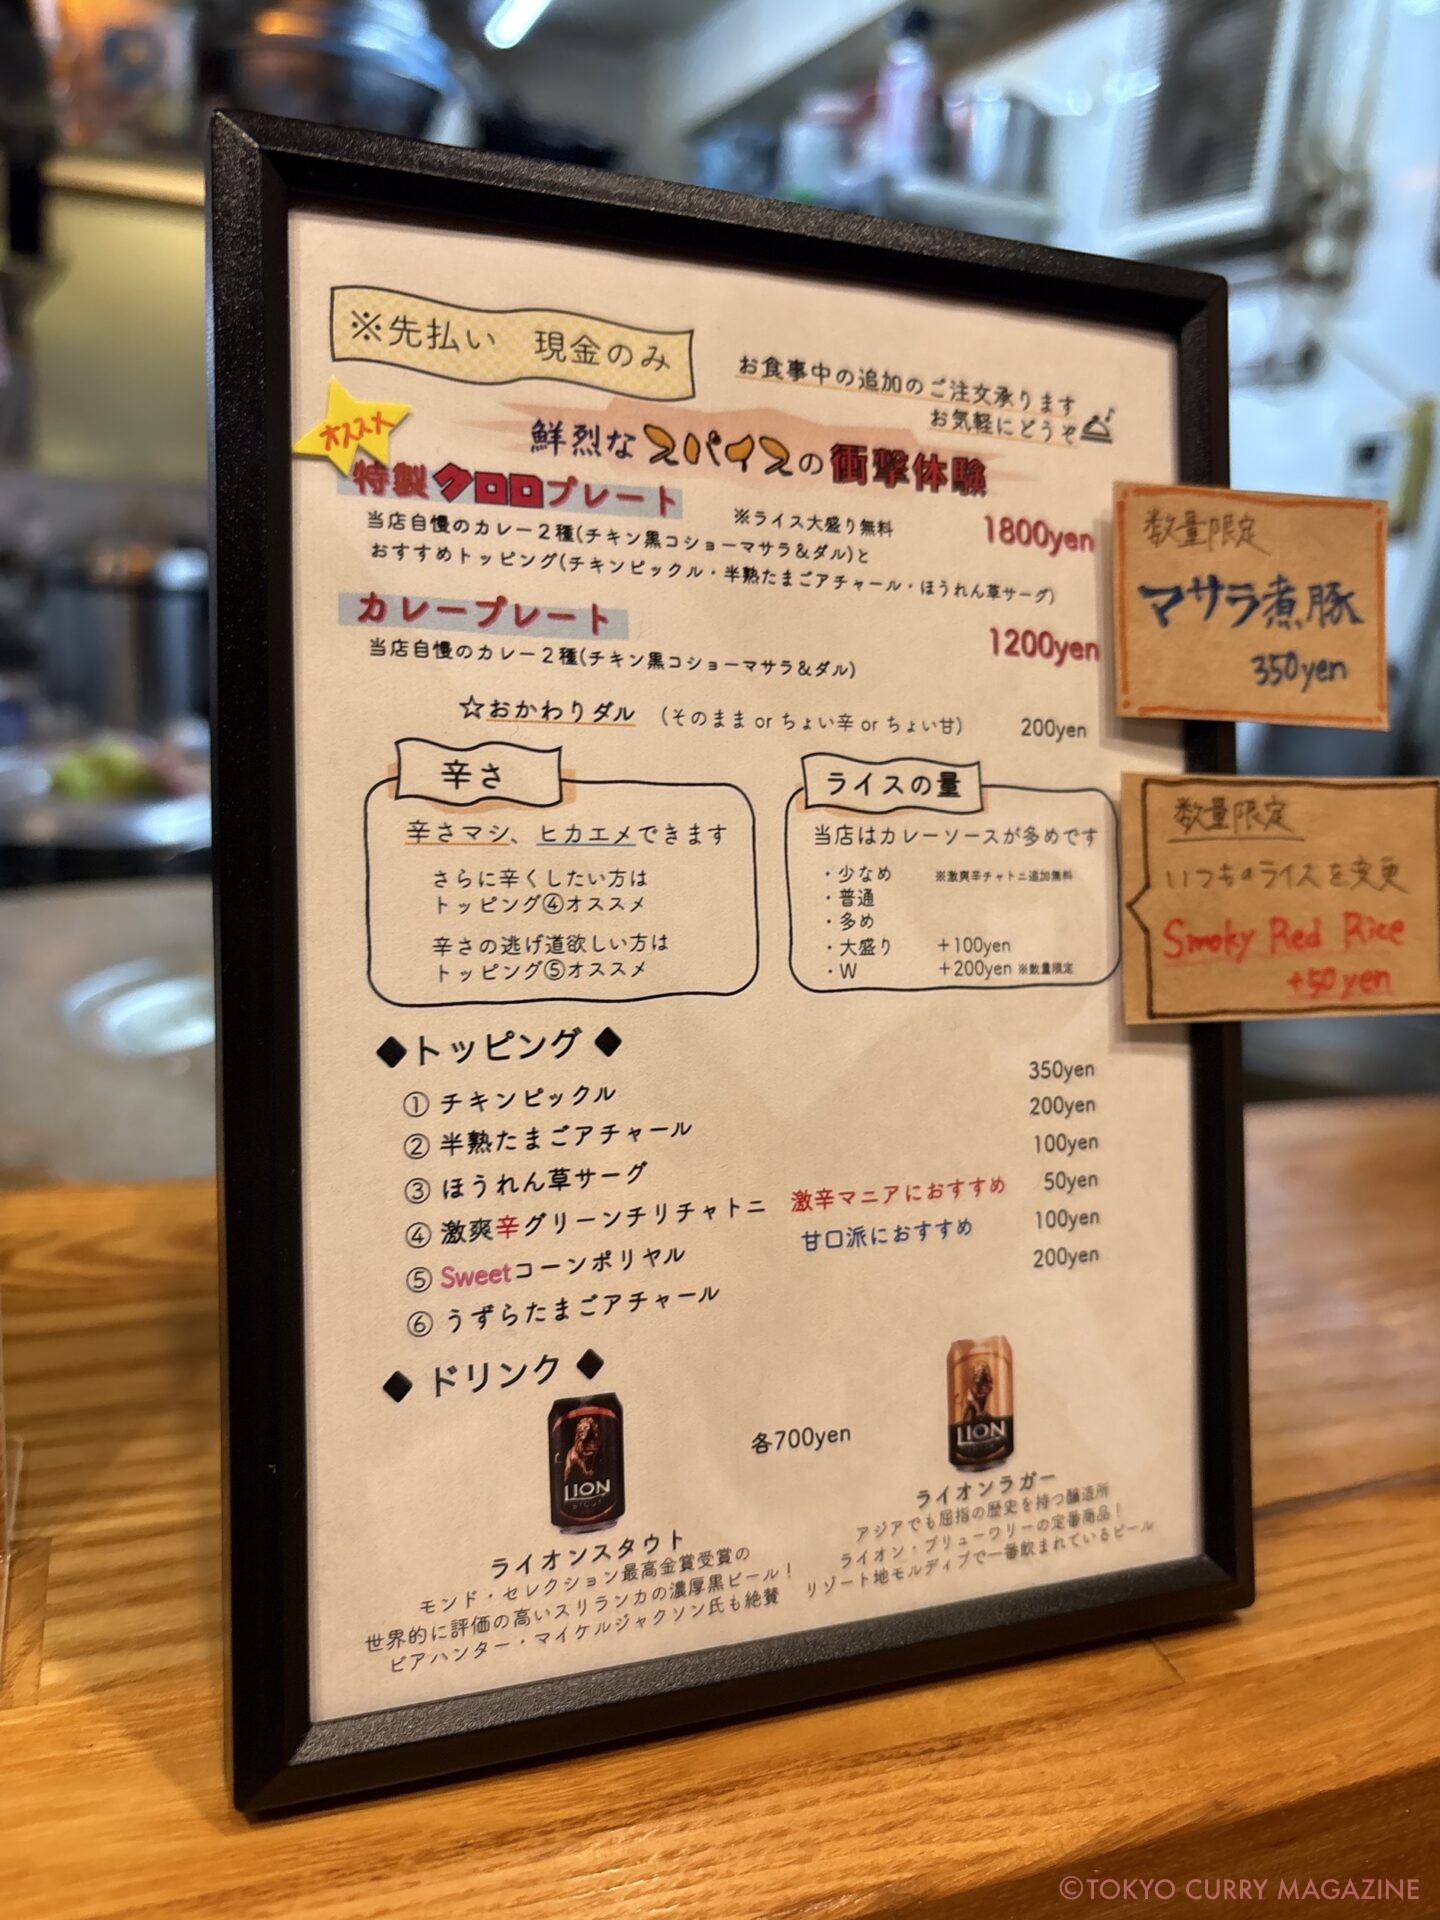 ※先払い 現金のみ
お食事中の追加のご注文承ります
お気軽にどうぞ
オススメ
鮮烈なスパイスの衝撃体験
特製クロロプレート
※ライス大盛り無料
1800yen
当店自慢のカレー2種(チキン黒コショーマサラ&ダル)と
おすすめトッピング(チキンピックル・半熟たまごアチャール・ほうれん草サーグ)
カレープレート
1200yen
当店自慢のカレー2種(チキン黒コショーマサラ&ダル)
☆おかわりダル (そのまま or ちょい辛 or ちょい甘) 200yen
数量限定
マサラ煮豚
350yen
辛さ
辛さマシ、ヒカエメできます
さらに辛くしたい方は
トッピング④オススメ
辛さの逃げ道欲しい方は
トッピング⑤オススメ
ライスの量
当店はカレーソースが多めです
・少なめ ※激爽辛チャトニ追加無料
・普通
・多め
・大盛り +100yen
・W +200yen ※数量限定
数量限定
いつものライスを変更
Smoky Red Rice
+50yen
◆トッピング◆
① チキンピックル 350yen
② 半熟たまごアチャール 200yen
③ ほうれん草サーグ 100yen
④ 激爽辛グリーンチリチャトニ 激辛マニアにおすすめ 50yen
⑤ Sweetコーンポリヤル 甘口派におすすめ 100yen
⑥ うずらたまごアチャール 200yen
◆ ドリンク ◆
LION
STOUT
各700yen
LION
ライオンスタウト
モンド・セレクション最高金賞受賞の
世界的に評価の高いスリランカの濃厚黒ビール！
ビアハンター・マイケルジャクソン氏も絶賛
ライオンラガー
アジアでも屈指の歴史を持つ醸造所
ライオン・ブリューワリーの定番商品！
リゾート地モルディブで一番飲まれているビール
©TOKYO CURRY MAGAZINE